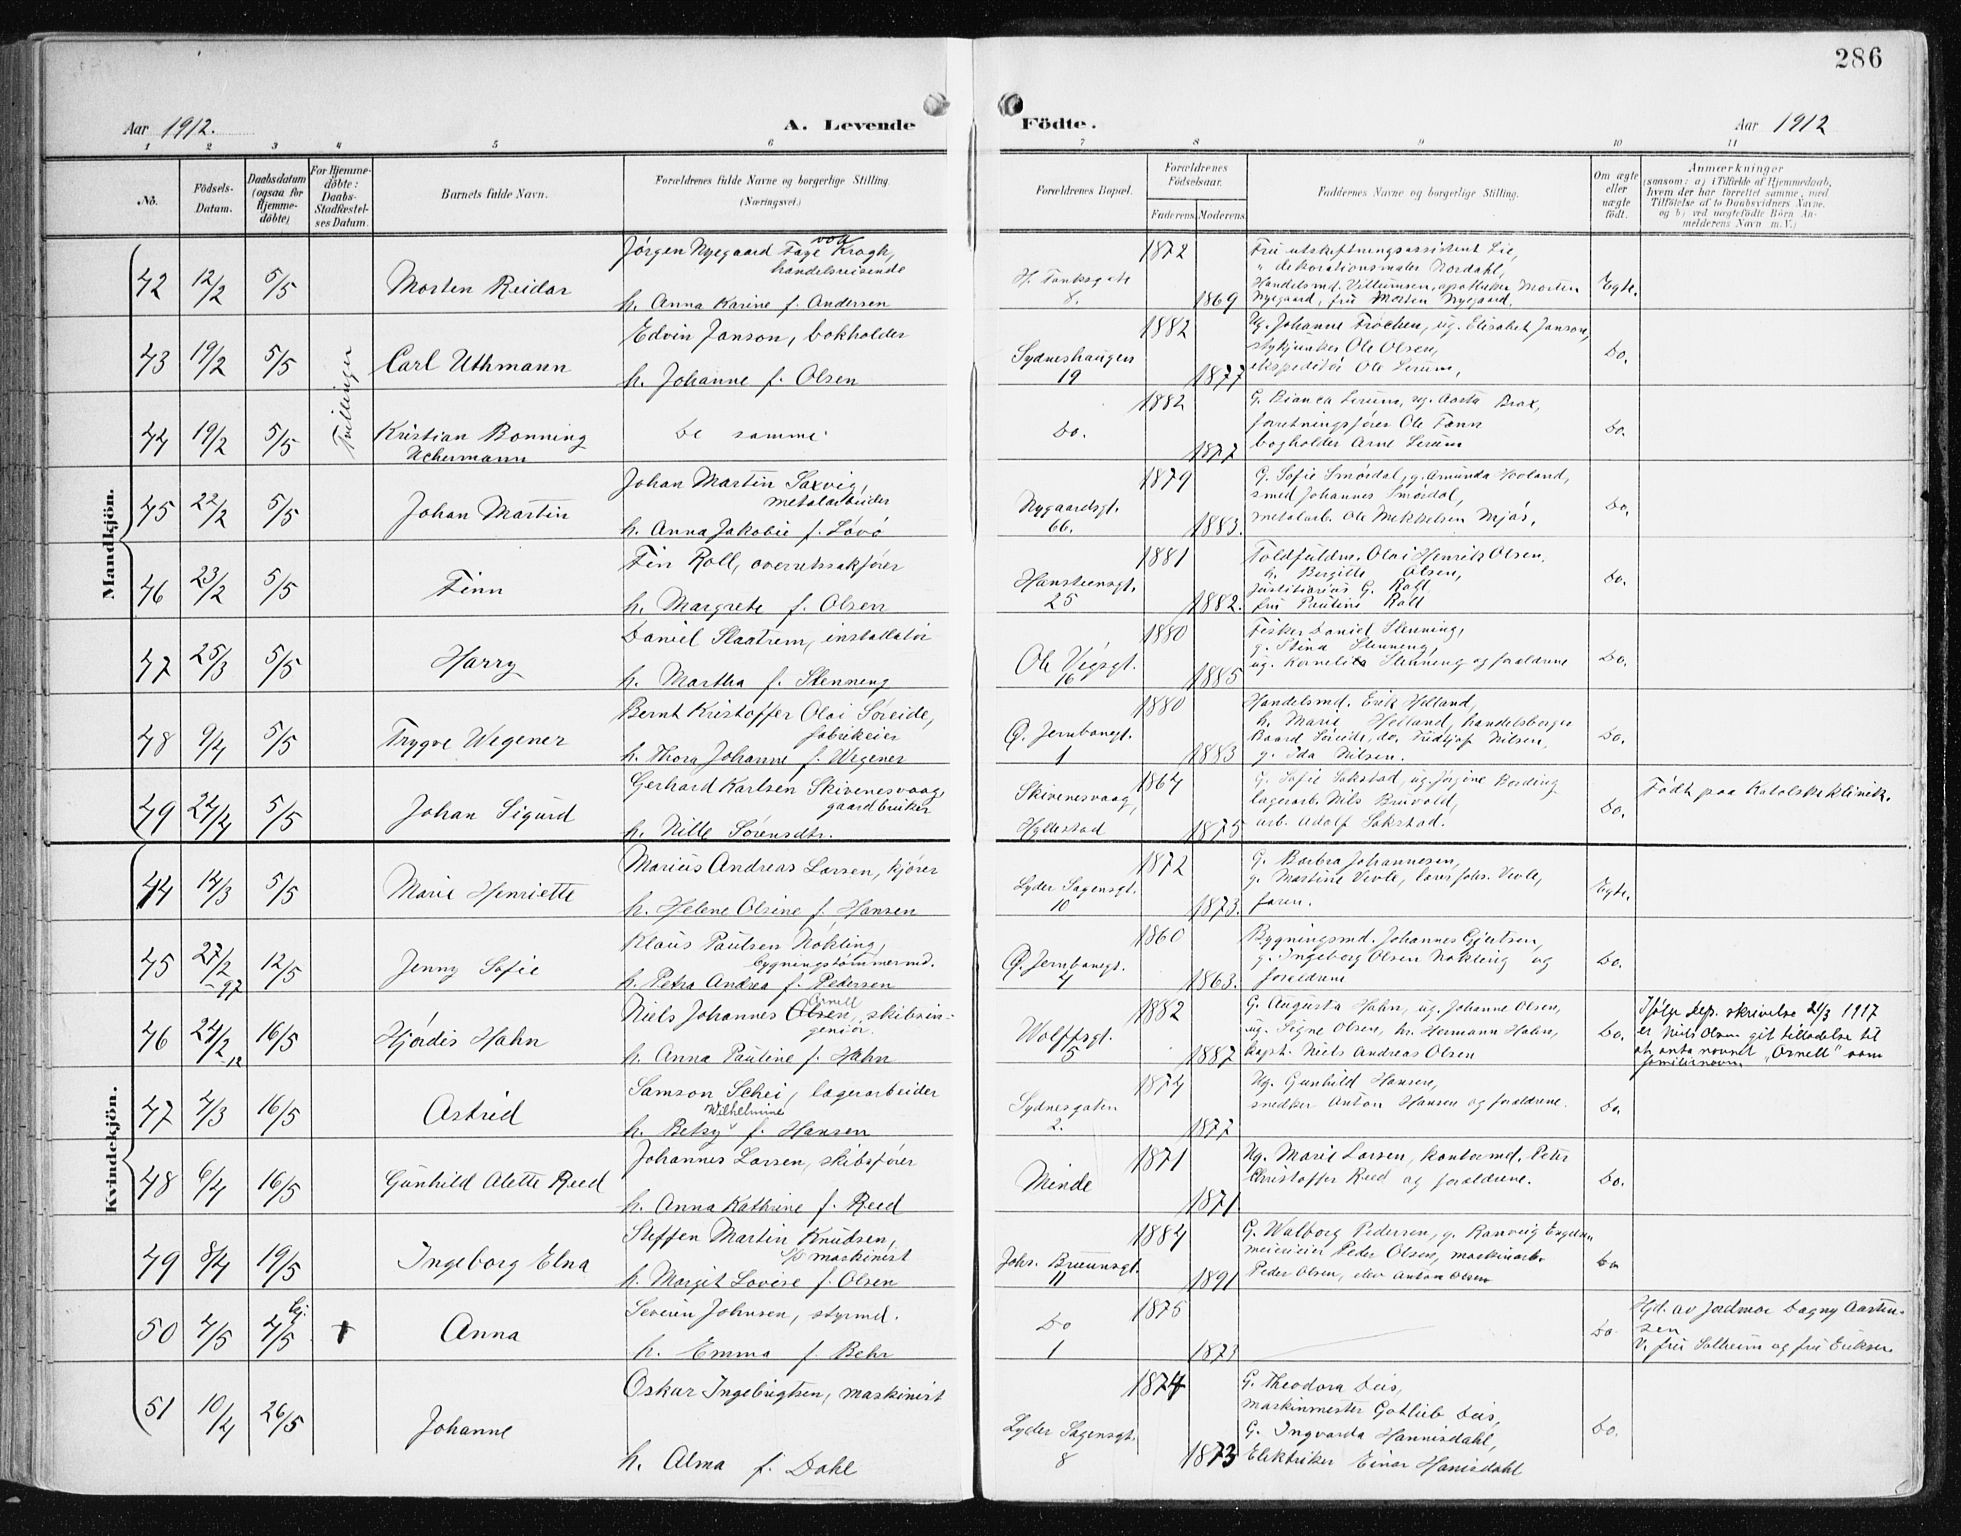 286
Aar 1912.
A. Levende Födte.
Aar 1912
1 2 3 4 5 6 7 8 9 10 11
No.
Födsels-
Datum.
Daabsdatum
(ogsaa for
Hjemme-
døbte)
For Hjemme-
døbte:
Daabs-
Stadfæstel-
ses Datum.
Barnets fulde Navn.
Forældrenes fulde Navne og borgerlige Stilling.
(Næringsvei.)
Forældrenes Bopæl.
Forældrenes
Födselsaar.
Faderens. Moderens.
Faddernes Navne og borgerlige Stilling.
Om ægte
eller
uægte
födt.
Anmærkninger
(saasom: a) i Tilfælde af Hjemmedaab,
hvem der har forrettet samme, med
Tilföielse af to Daabsvidners Navne,
og b) ved uægtefödte Börn An-
melderens Navn m. V.)
Mandkjön.
42 12/2 5/5 Morten Reidar
Jørgen Nyegaard Faye Krogh,
handelsreisende
h. Anna Karine f. Andersen
H. Tanksgate
8.
1872
1869
Fru utskiftningsassistent Lie,
" dekorationsmaler Nordahl,
Handelsmd. Villumsen, apotheker Morten
Nyegaard, fru Morten Nyegaard.
Egte.
Tvillinger
43 19/2 5/5 Carl Uthmann
Edvin Janson, bokholder
h. Johanne f. Olsen
Sydneshaugen
19
1882
1877
Ug. Johanne Frochen, ug. Elisabet Janson,
stykjunker Ole Olsen,
ekspeditør Ole Lerum,
Do.
44 19/2 5/5 Kristian Bonning
Uchermann
De samme
Do.
1882
1877
G. Bianca Lerum, ug. Aasta Brox,
forretningsfører Ole Fann
bogholder Arne Lerum
Do.
45 22/2 5/5 Johan Martin
Johan Martin Saxvig,
metalarbeider
h. Anna Jakobie f. Løvø
Nygaardsgt.
66.
1879
1883.
G. Sofie Smørdal, g. Amunda Hovland,
smed Johannes Smørdal,
metalarb. Ole Mekkelsen Mjøs,
Do.
46 23/2 5/5 Finn
Fin Roll, overretssakfører
h. Margrete f. Olsen
Hansteensgt.
25
1881
1882.
Toldfuldm. Olai Henrik Olsen,
h. Bergitte Olsen,
Justitiarius G. Roll
fru Pauline Roll
Do.
47 25/3 5/5 Harry
Daniel Slaatrem, installatør
h. Martha f. Stenning
Ole Vigsgt.
16
1880
1885
Fisker Daniel Stenning,
g. Stina Stenning,
ug. Kornelia Stenning og forældrene
Do.
48 9/4 5/5 Trygve Wegener
Bernt Kristoffer Olai Søreide,
fabrikeier
h. Thora Johanne f. Wegener
Ø. Jernbanegt.
1
1880
1883
Handelsmd. Erik Helland,
h. Marie Helland, handelsborger
Baard Søreide, do. Fridtjof Nilsen,
g. Ida Nilsen.
Do.
49 24/4 5/5 Johan Sigurd
Gerhard Karlsen Skivenesvaag,
gaardbruker
h. Nille Sørensdtr.
Skivenesvaag,
Hyllestad
1864
1875
G. Sofie Sakstad, ug. Jørgine Bording
lagerarb. Nils Bruvold,
arb. Adolf Sakstad.
Do.
Født paa Katolske klinik.
Kvindekjön.
44 14/3 5/5 Marie Henriette
Marius Andreas Larsen, kjører
h. Helene Olsine f. Hansen
Lyder Sagensgt.
10
1872
1873.
G. Barbra Johannesen,
g. Martine Vevle, Lars Johs. Vevle,
faren.
Egte.
45 27/2 -97 12/5 Jenny Sofie
Klaus Paulsen Nøkling,
bygningstømmermd.
h. Petra Andrea f. Pedersen
Ø. Jernbanegt.
4
1860
1863.
Bygningsmd. Johannes Gjertsen,
g. Ingeborg Olsen Nøkling og
forældrene
Do.
46 24/2 -12 16/5 Hjørdis Hahn
Ornell
Niels Johannes Olsen, skibsin-
geniør.
h. Anna Pauline f. Hahn
Wolffsgt.
5
1882
1887
G. Augusta Hahn, ug. Johanne Olsen,
ug. Signe Olsen, hr. Hermann Hahn,
kapt. Niels Andreas Olsen
Do.
Ifølge dep. skrivelse 21/3 1917
er Niels Olsen git tilladelse til
at anta navnet "Ornell" som
familienavn
47 4/3 16/5 Astrid
Samson Schei, lagerarbeider
Wilhelmine
h. Betsy f. Hansen
Sydnesgaten
2.
1874
1877
Ug. Gunhild Hansen,
snedker Anton Hansen og forældrene.
Do.
48 6/4 16/5 Gunhild Alette Reed
Johannes Larsen, skibsfører
h. Anna Kathrine f. Reed
Minde
1871
1871.
Ug. Marie Larsen, kontormd. Peter
Christoffer Reed og forældrene.
Do.
49 8/4 19/5 Ingeborg Elna
Steffen Martin Knudsen,
maskinist
h. Margit Lovise f. Olsen
Johs. Bruunsgt.
11
1884
1891
G. Walborg Pedersen, g. Ranveig Engelsen
meieneier Peder Olsen, maskinarb.
Peder Olsen, elev Anton Olsen
Do
50 4/5 4/5 + Anna
Severin Johnsen, styrmd.
h. Emma f. Behr
Do
1
1875
1873
Do
Hjd. av jordmor Dagny Aarten-
sen
V. fru Solheim og fru Eriksen.
51 10/4 26/5 Johanne
Oskar Ingebrigtsen, maskinist
h. Alma f. Dahl
Lyder Sagensgt.
8
1874
1873
G. Theodora Deis,
maskinmester Gotlieb Deis,
G. Ingvarda Hannisdahl,
Elektriker Einar Hanisdahl
Do.